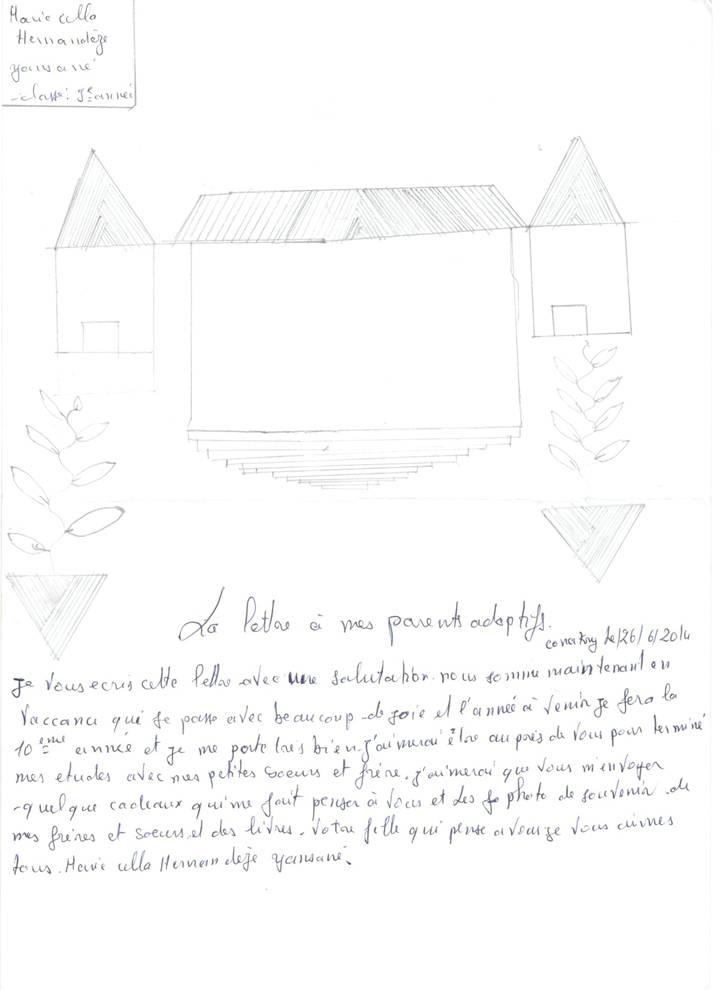 Marie cella
Hernandèze
yansané
classe: 9e année
La lettre à mes parents adoptifs.
conakry le/26/6/2014
Je vous ecris cette lettre avec une salutation. nous somme maintenant en
Vaccance qui se passe avec beaucoup de joie et l'année à venir je fera la
10ème année et je me porte très bien. j'aimerai être au près de vous pour terminé
mes etudes avec mes petites soeurs et frère. j'aimerai que vous m'envoyer
quelque cadeaux qui me fait penser à vous et des photo de souvenir de
mes frères et soeurs et des livres. Votre fille qui pense a vous je vous aimes
tous. Marie cella Hernandèze yansané.